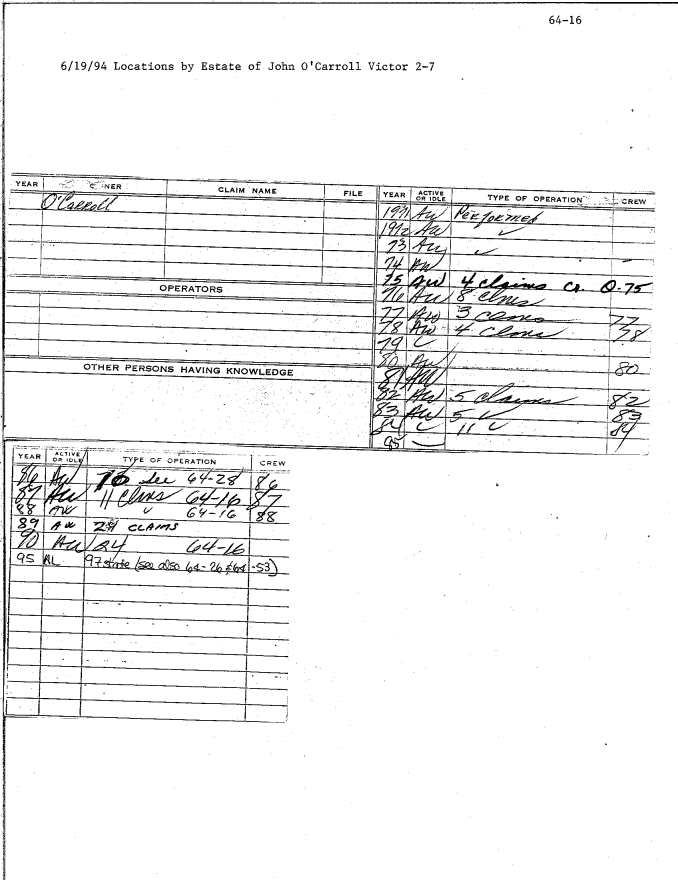 64-16
6/19/94 Locations by Estate of John O'Carroll Victor 2-7
YEAR OWNER CLAIM NAME FILE
O'Carroll
OPERATORS
OTHER PERSONS HAVING KNOWLEDGE
YEAR ACTIVE OR IDLE TYPE OF OPERATION CREW
1971 AW Performed
1972 AW ✓
73 AW ✓
74 AW
75 AW 4 claims CR. 0.75
76 AW 8 clms
77 AW 3 clms 77
78 AW 4 clms 78
79 ✓
80 AW 80
81 AW
82 AW 5 claims 82
83 AW 5 ✓ 83
84 ✓ 11 ✓ 84
85 —
YEAR ACTIVE OR IDLE TYPE OF OPERATION CREW
86 AW see 64-28 86
87 AW 11 clms 64-16 87
88 AW ✓ 64-16 88
89 AW CLAMS
90 AW 24 64-16
95 AL 97 state (see also 64-26 & 64-53)